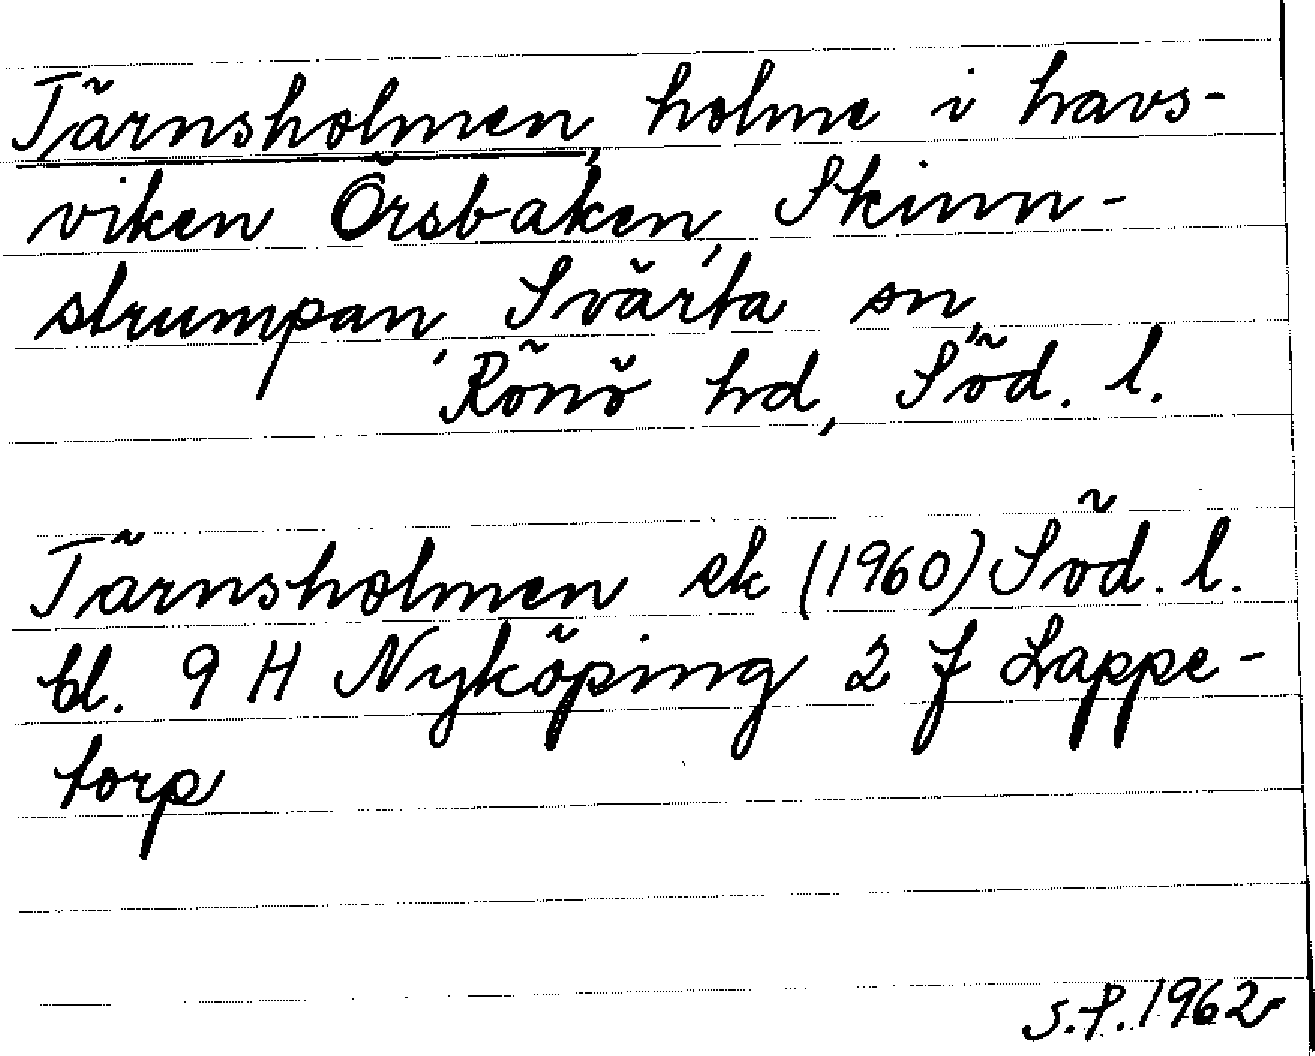 Tärnsholmen, holme i havs-
viken Örsbaken, Skinn-
strumpan, Svärta sn,
Rönö hd, Söd. l.
Tärnsholmen ek (1960) Söd. l.
bl. 9 H Nyköping 2 f Lappe-
torp
S.P. 1962